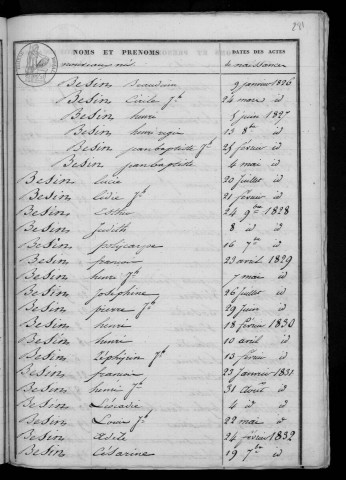 291
NOMS ET PRENOMS DATES DES ACTES
nouveau né de naissance
Besin 9 janvier 1826
Besin Cécile J.e 24 mars id
Besin henri 8 juin 1827
Besin henri 13 8bre id
Besin jean baptiste J.e 25 février id
Besin jean baptiste 4 mai id
Besin Lucie 20 Juillet id
Besin Lidie J.e 21 février id
Besin Esther 24 9bre 1828
Besin Judith 8 id id
Besin policarpe 16 7bre id
Besin 23 avril 1829
Besin henri J.e 7 mai id
Besin Joséphine 26 Juillet id
Besin pierre J.e 29 Juin id
Besin henri 18 février 1830
Besin henri 10 avril id
Besin Zéphirin J.e 13 février id
Besin 23 Janvier 1831
Besin henri J.e 31 Août id
Besin Léocadie 4 id id
Besin Louis J.e 22 mai id
Besin Adèle 24 février 1832
Besin Césarine 19 7bre id